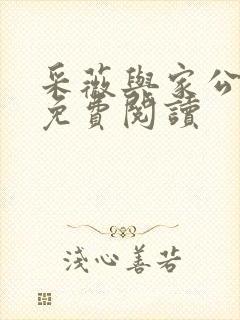 采薇與家公
免費閱讀
淺心善若